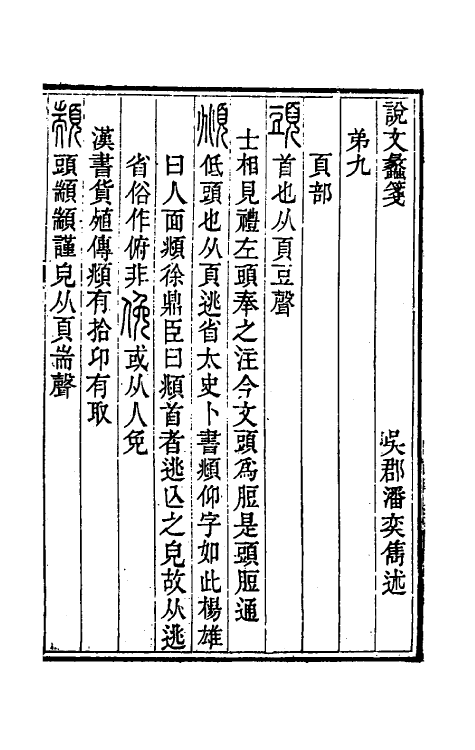 說文蠡箋 吳郡潘奕雋述
弟九
頁部
頭首也从頁豆聲
士相見禮左頭奉之注今文頭爲脰是頭脰通
頫低頭也从頁逃省太史卜書頫仰字如此楊雄
曰人面頫徐鼎臣曰頫首者逃亾之皃故从逃
省俗作俯非俛或从人免
漢書貨殖傳頫有拾卬有取
顓頭顓顓謹皃从頁耑聲